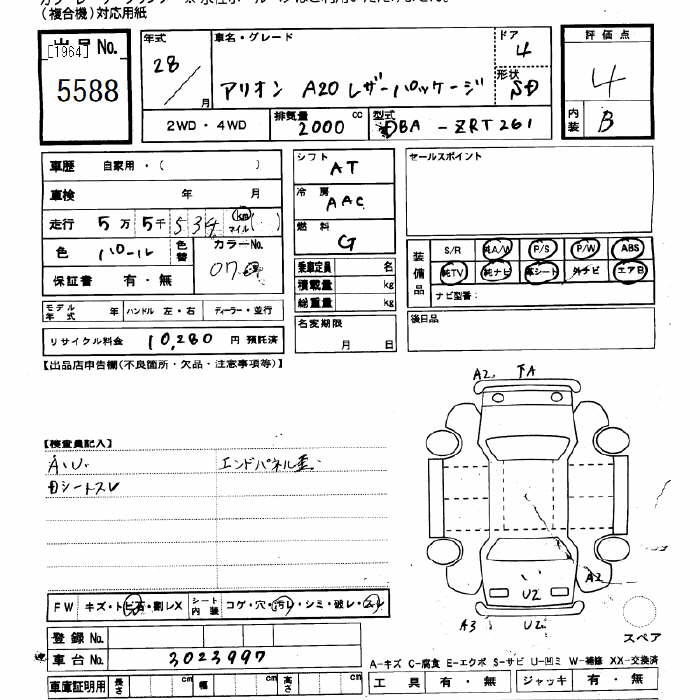 (複合機)対応用紙
出品No.
[1964]
5588
年式
28
月
車名・グレード
アリオン A20 レザーパッケージ
ドア
4
形状
SD
評価点
4
内装
B
2WD・4WD
排気量
2000 cc
型式
DBA - ZRT261
車歴 自家用・( )
車検 年 月
走行 5万 5千 534 km マイル( )
色 パール
色替
カラーNo.
070
保証書 有・無
シフト
AT
冷房
AAC
燃料
G
セールスポイント
乗車定員 名
積載量 kg
総重量 kg
装備品
S/R 純A/W P/S P/W ABS
純TV 純ナビ 革シート 外ナビ エアB
ナビ型番:
モデル年式 年 ハンドル 左・右 ディーラー・並行
リサイクル料金 10,280 円 預託済
名変期限
月 日
後日品
【出品店申告欄(不良箇所・欠品・注意事項等)】
A2 下A
【検査員記入】
A.U. エンドパネル歪
Dシートスレ
A2
U2
A3 U2
FW キズ・トビ石・割レX シート内装 コゲ・穴・汚レ・シミ・破レ・スレ
登録No.
車台No. 3023997
スペア
A-キズ C-腐食 E-エクボ S-サビ U-凹ミ W-補修 XX-交換済
車庫証明用 長さ cm 幅 cm 高さ cm
工具 有・無 ジャッキ 有・無